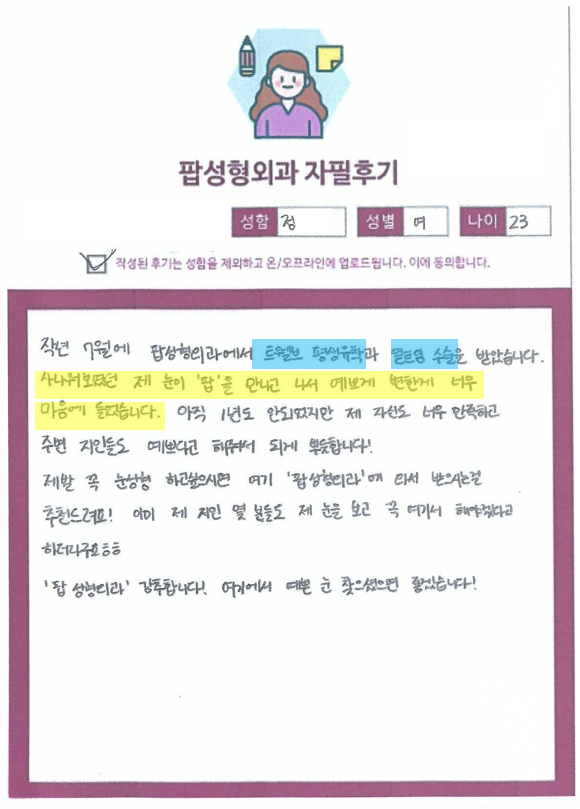 팝성형외과 자필후기
성함 정 성별 여 나이 23
작성된 후기는 성함을 제외하고 온/오프라인에 업로드됩니다. 이에 동의합니다.
작년 7월에 팝성형외과에서 트웰브 평생유착과 밑트임 수술을 받았습니다.
사나워보였던 제 눈이 '팝'을 만나고 나서 예쁘게 변한게 너무
마음에 들었습니다. 아직 1년도 안되었지만 제 자신도 너무 만족하고
주변 지인들도 예쁘다고 해줘서 되게 뿌듯합니다!
제발 꼭 눈성형 하고싶으시면 여기 '팝성형외과'에 와서 받으시는걸
추천드려요! 이미 제 지인 몇 분들도 제 눈을 보고 꼭 여기서 해야겠다고
하더라구요ㅎㅎ
'팝 성형외과' 강추합니다! 여기에서 예쁜 눈 찾으셨으면 좋겠습니다!